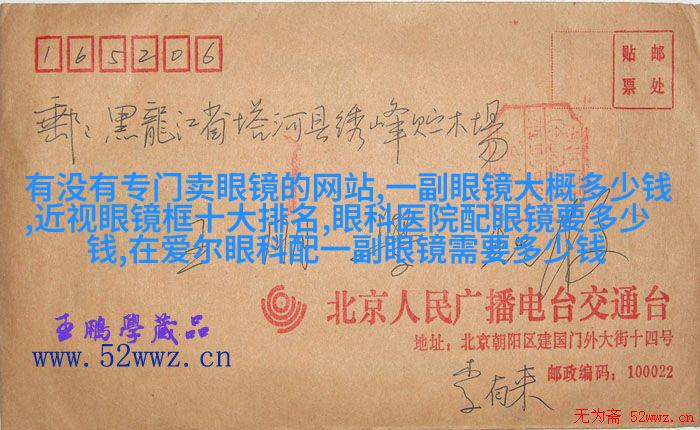 165206
贴 邮
票 处
邮:黑龍江省塔河县绣峰贮木場
有没有专门卖眼镜的网站,一副眼镜大概多少钱
,近视眼镜框十大排名,眼科医院配眼镜要多少
钱,在爱尔眼科配一副眼镜需要多少钱
北京人民广播电台交通台
地址：北京朝阳区建国门外大街十四号
邮政编码：100022
李有来
王鹏學藏品
www.52wwz.cn
无为斋 52wwz.cn